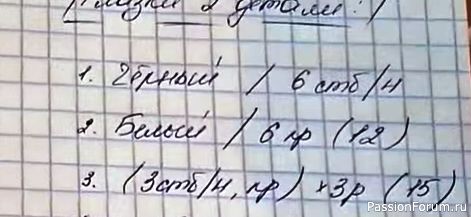 Глазки 2 детали:
1. Чёрный / 6 стб/н
2. Белый / 6 пр (12)
3. (3 стб/н, пр) *3р (15)
PassionForum.ru